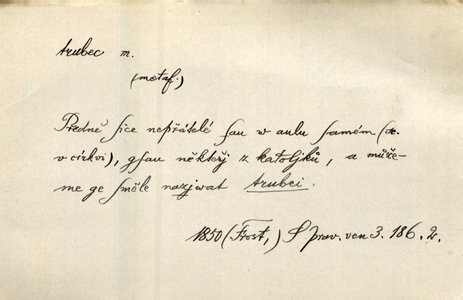 trubec m.
(metaf.)
Předně sice nepřátelé sau w aulu samém (t.
v církvi), gsau někteřj z katoljků, a může-
me ge směle nazjwat trubci.
1850 (Frost,) S prav. ven 3. 186. 2.